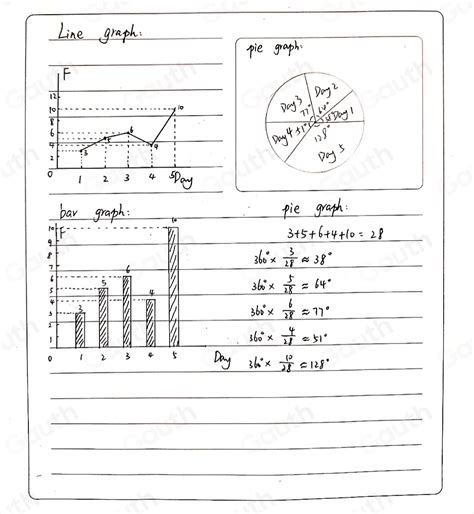 Line graph:
F
12
10
8
6
4
2
3
5
6
4
10
1 2 3 4 5 Day
pie graph:
Day 2
Day 3
77°
64°
38° Day 1
Day 4 51°
128°
Day 5
bar graph:
F
10
9
8
7
6
5
4
3
2
1
0
3
5
6
4
10
1 2 3 4 5 Day
pie graph:
3+5+6+4+10 = 28
360° × 3/28 ≈ 38°
360° × 5/28 ≈ 64°
360° × 6/28 ≈ 77°
360° × 4/28 ≈ 51°
360° × 10/28 ≈ 128°
Gauth